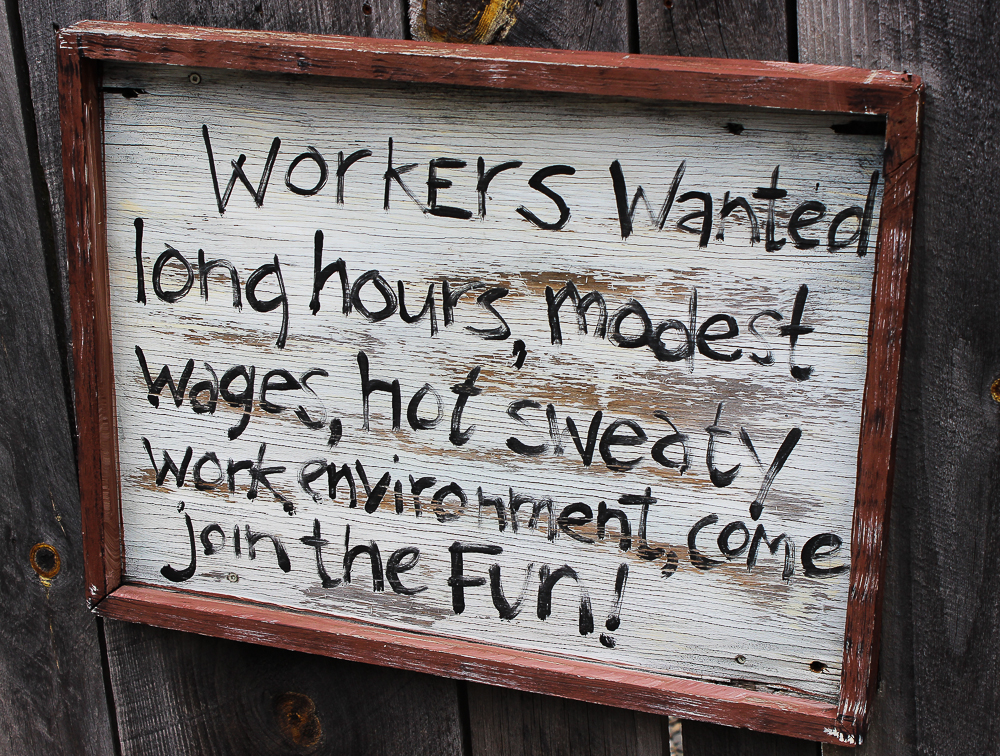 Workers Wanted
long hours, modest
wages, hot sweaty
work environment, come
join the Fun!